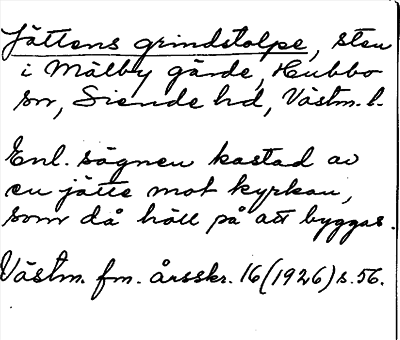 Jättens grindstolpe, sten
i Målby gärde, Hubbo
sn, Siende hd, Västm. l.
Enl. sägnen kastad av
en jätte mot kyrkan,
som då höll på att byggas.
Västm. fm. årsskr. 16 (1926) s. 56.